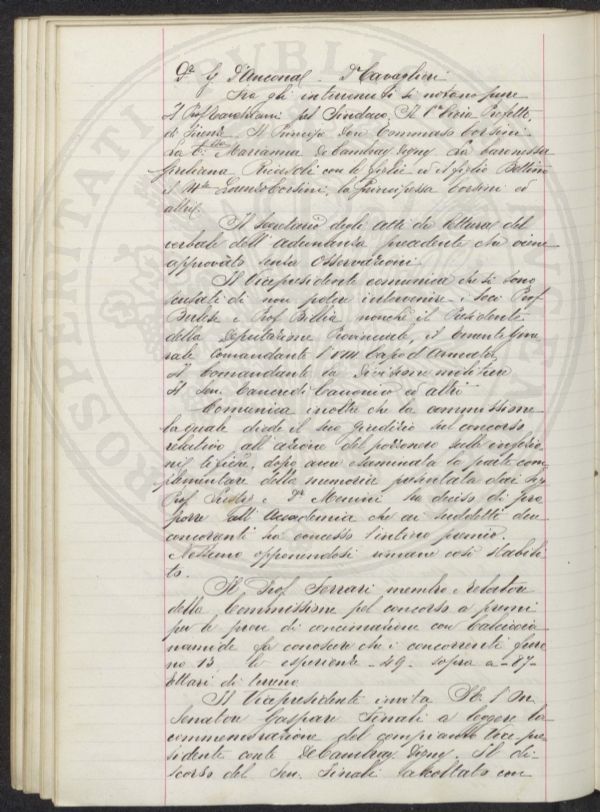 Dr G. D'Ancona - Dr Cavaglieri
Tra gli intervenuti si notano pure
Il Prof pel Sindaco, Il Vice Prefetto
di Firenze Il Principe Don Tommaso Corsini
La Marianna De Cambray Digny La baronessa
Giuliana Ricasoli con le figlie ed il figlio Bettino
Il Corsini, la Principessa Corsini ed
altri.
Il Segretario degli atti dà lettura del
verbale dell'adunanza precedente che viene
approvato senza osservazioni.
Il Vicepresidente comunica che si sono
scusati di non poter intervenire i Soci Prof
Berlese e Prof Billia nonchè il Presidente
della Deputazione Provinciale, il Tenente Gene
rale Comandante l'VIII Corpo d'Armata,
Il Comandante la Divisione militare
Il Sen. Tancredi Canonico ed altri
Comunica inoltre che la commissione
la quale diede il suo giudizio sul concorso
relativo all'azione del sulle
dopo aver esaminata la parte com
plementare della memoria presentata dai Sig
Prof e Dr ha deciso di pro
porre all'Accademia che ai suddetti due
concorrenti sia concesso l'intero premio.
Nessuno opponendosi rimane così stabili
to.
Il Prof Ferrari membro relatore
della Commissione pel concorso a premi
per le prove di concimazione con Calciocia
namide fa conoscere che i concorrenti furo
no 13 le esperienze - 49 - sopra a - 87 -
Ettari di terreno
Il Vicepresidente invita S.E. l'On.
Senatore Gaspare Finali a leggere la
commemorazione del compianto Vice pre
sidente conte De Cambray Digny. Il di-
scorso del Sen. Finali ascoltato con